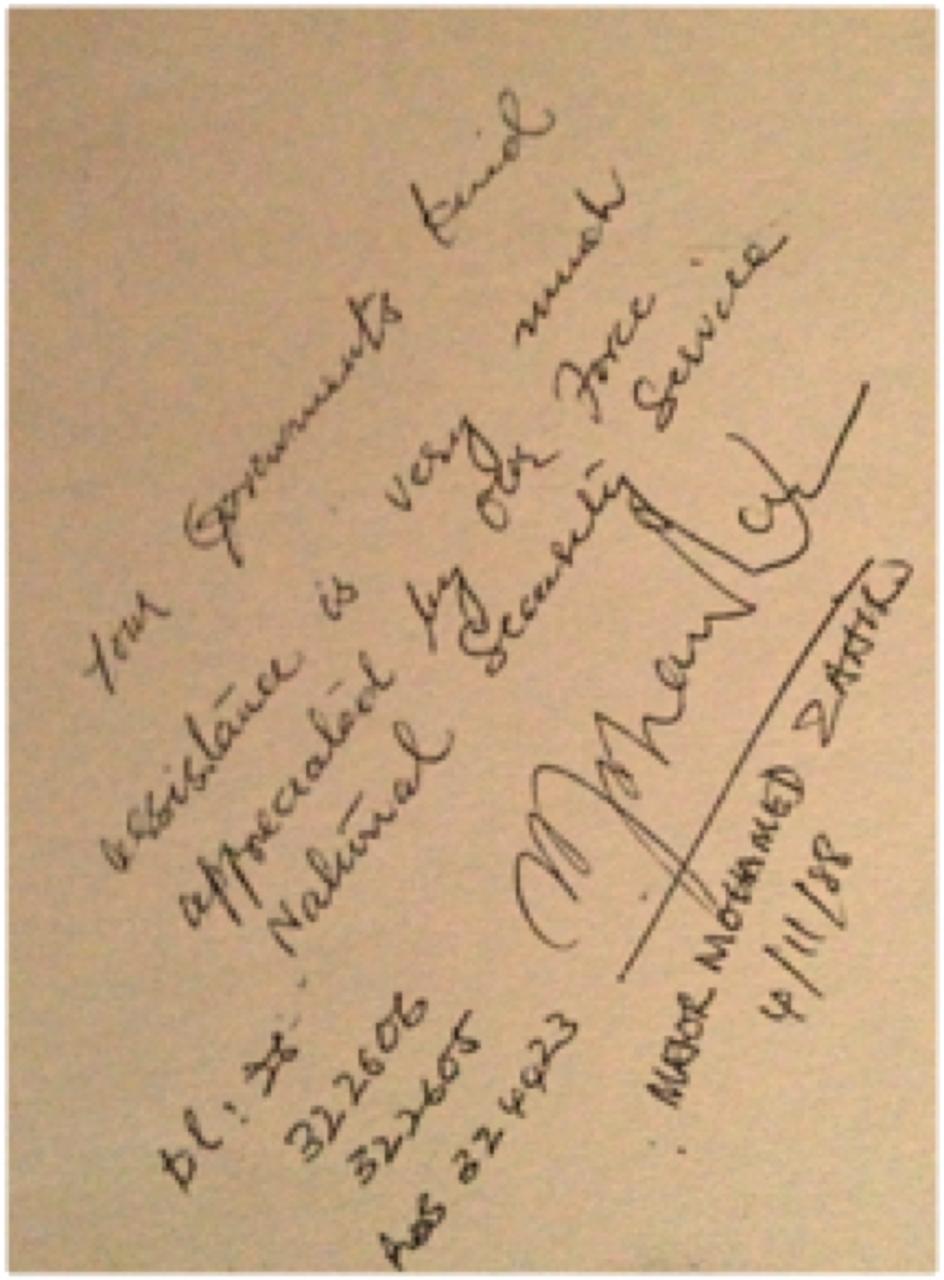 Your Governments kind
assistance is very much
appreciated by our Force
National Security Service
MAJOR MOHAMED ZAHIR
4/11/88
322606
322605
324423